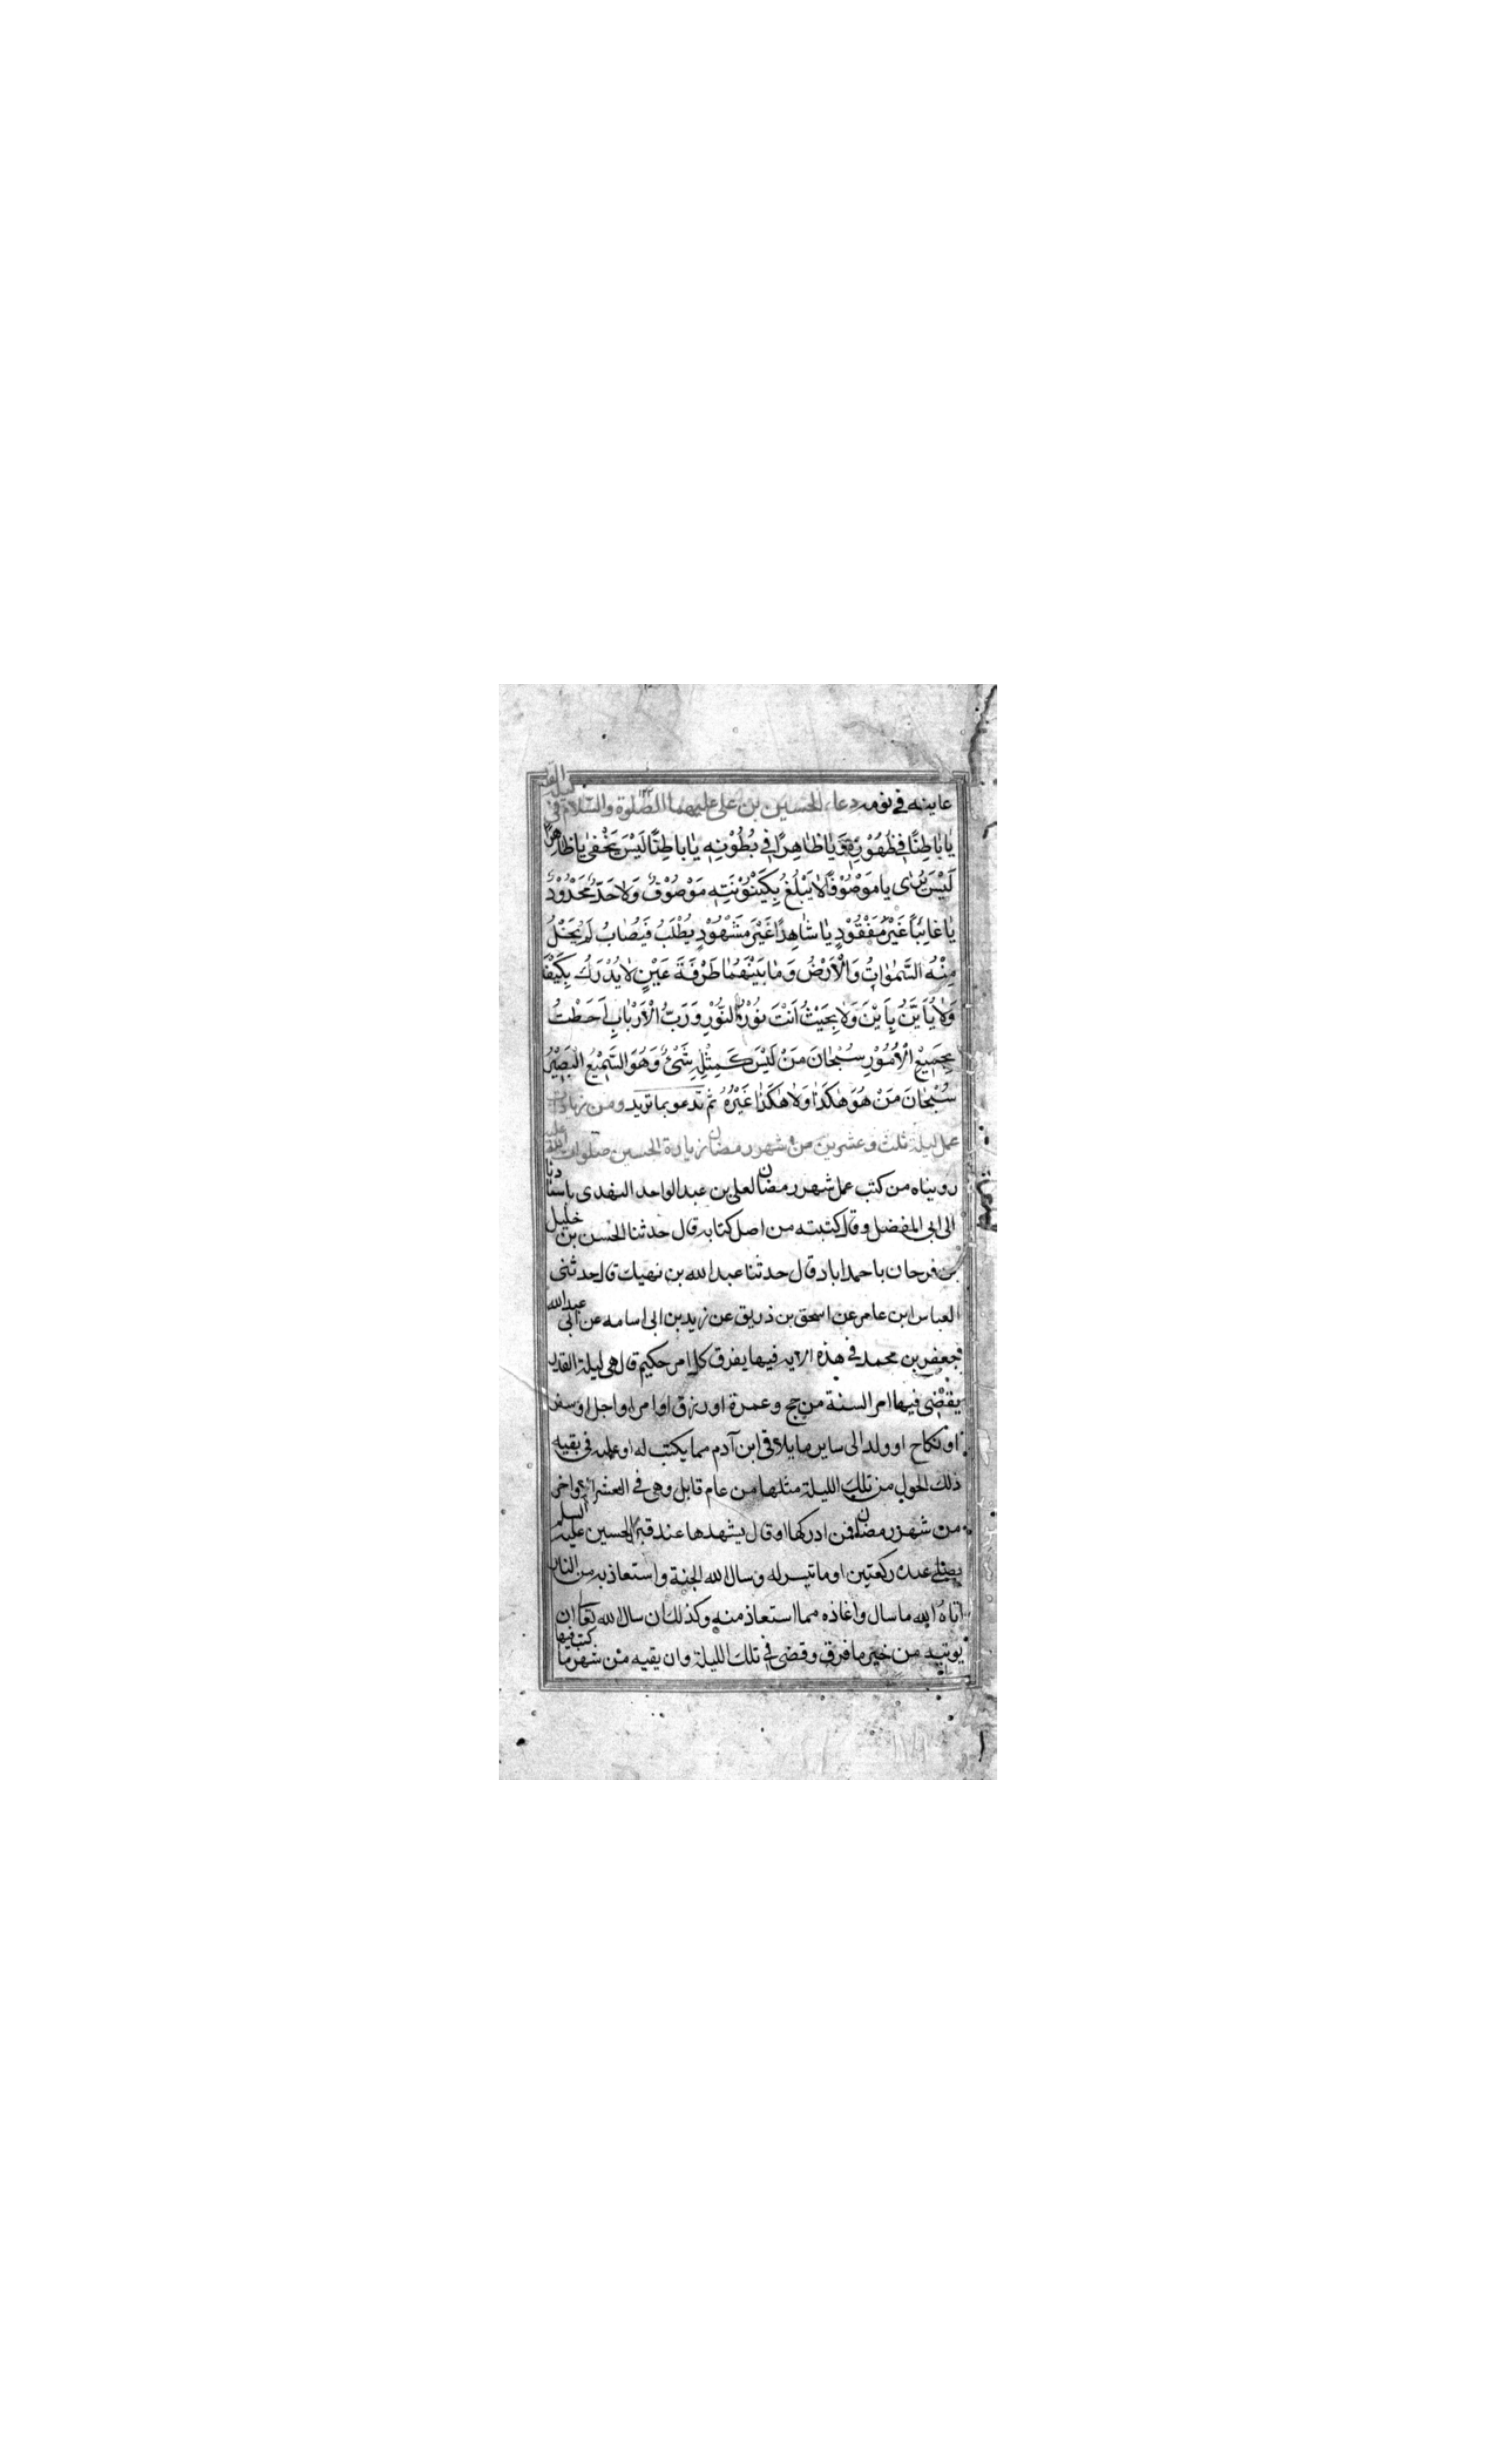 عاينه في نومه دعاء الحسين بن علي عليهما الصلوة والسلام في ليلة القد
يا بَاطِنًا في ظُهُوْرِهِ وَيا ظاهِرًا في بُطُوْنِهِ يا باطِنًا لَيْسَ يَخْفى يا ظاهرًا
لَيْسَ يُرى يا مَوْصُوْفًا لا يَبْلُغُ بِكَيْنُوْنَتِهِ مَوْصُوْفٌ وَلا حَدٌّ مَحْدُوْدٌ
يا غائِبًا غَيْرَ مَفْقُوْدٍ يا شاهِدًا غَيْرَ مَشْهُوْدٍ يُطْلَبُ فَيُصابُ لَمْ يَخْلُ
مِنْهُ السَّمٰواتُ وَالْاَرْضُ وَما بَيْنَهُما طَرْفَةَ عَيْنٍ لا يُدْرَكُ بِكَيْفَ
وَلا يُاَيَّنُ بِاَيْنَ وَلا بِحَيْثُ اَنْتَ نُوْرُ النُّوْرِ وَرَبُّ الْاَرْبابِ اَحَطْتَ
بِجَمِيْعِ الْاُمُوْرِ سُبْحانَ مَنْ لَيْسَ كَمِثْلِهِ شَيْءٌ وَهُوَ السَّمِيْعُ البَصِيْرُ
سُبْحانَ مَنْ هُوَ هٰكَذا وَلا هٰكَذا غَيْرُهُ ثم تدعو بما تريد ومن زيادات
عمل ليلة ثلث وعشرين من شهر رمضان زيارة الحسين صلوات الله عليه
رويناه من كتب عمل شهر رمضان لعلي بن عبد الواحد النهدي باسنادنا
الى ابي المفضل وقال كتبته من اصل كتابه قال حدثنا الحسن بن خليل
بن فرحان باحمداباد قال حدثنا عبد الله بن نهيك قال حدثني
العباس ابن عامر عن اسحق بن زريق عن زيد بن ابي اسامه عن ابي عبد الله
جعفر بن محمد في هذه الايه فيها يفرق كل امر حكيم قال هي ليلة القدر
يقضى فيها امر السنة من حج وعمرة او رزق او امر او اجل او سفر
او نكاح او ولد الى ساير ما يلاقي ابن آدم مما يكتب له او عليه في بقيه
ذلك الحول من تلك الليلة مثلها من عام قابل وهي في العشر الاواخر
من شهر رمضان فمن ادركها او قال يشهدها عند قبر الحسين عليه السلم
يصلي عنده ركعتين او ما تيسر له وسال الله الجنة واستعاذ به من النار
اتاه الله ما سال واعاذه مما استعاذ منه وكذلك ان سال الله تعا ان
يوتيه من خير ما فرق وقضى في تلك الليلة وان يقيه من شهر ما كتب فيها